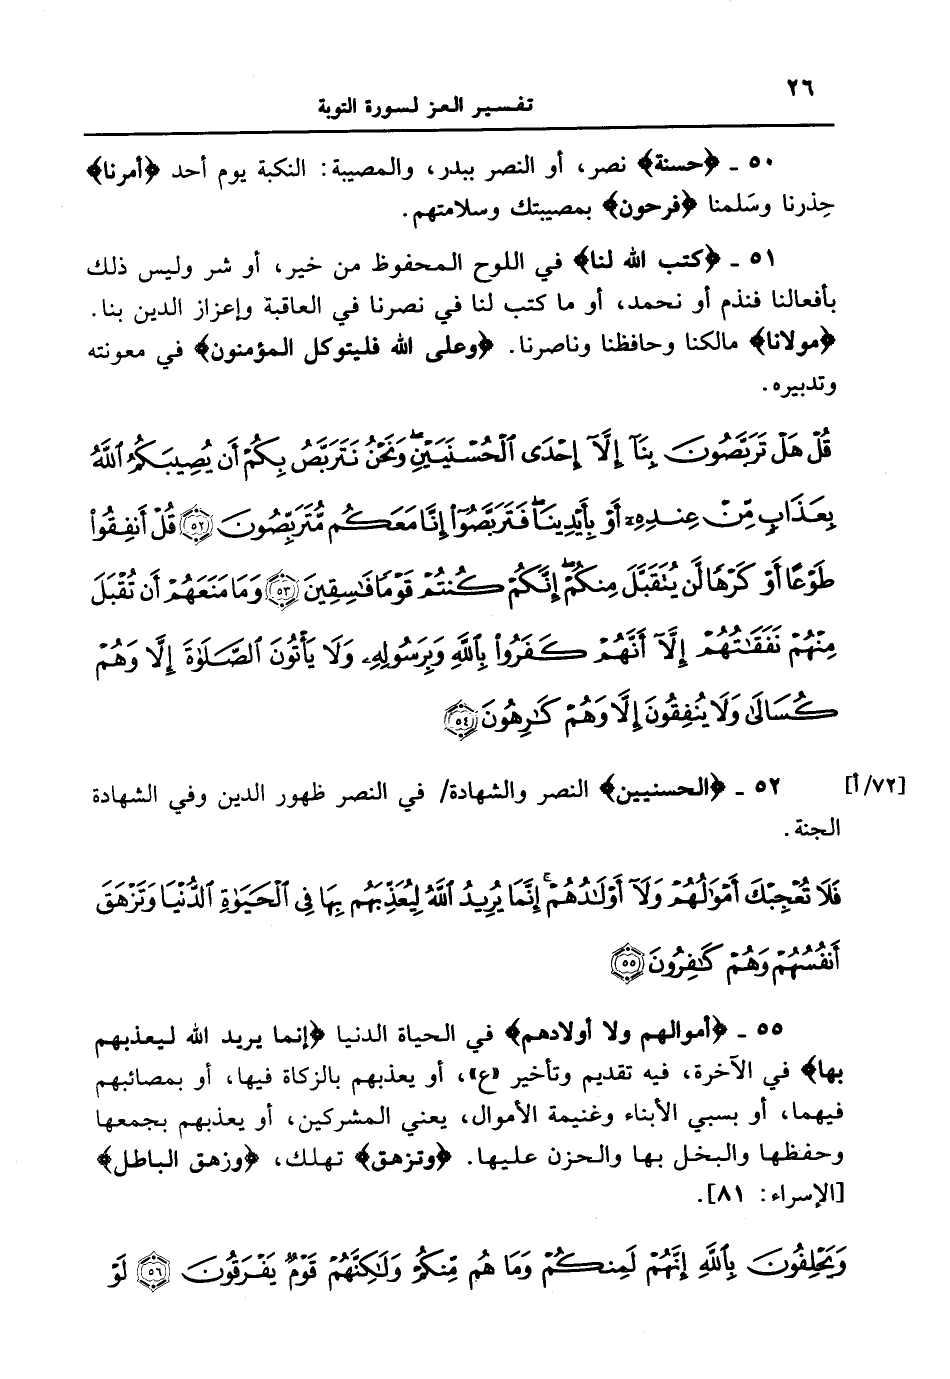 ٢٦
تفسير العز لسورة التوبة
٥٠ ـ ﴿حسنة﴾ نصر، أو النصر ببدر، والمصيبة: النكبة يوم أحد ﴿أمرنا﴾
حِذرنا وسَلمنا ﴿فرحون﴾ بمصيبتك وسلامتهم.
٥١ ـ ﴿كتب الله لنا﴾ في اللوح المحفوظ من خير، أو شر وليس ذلك
بأفعالنا فنذم أو نحمد، أو ما كتب لنا في نصرنا في العاقبة وإعزاز الدين بنا.
﴿مولانا﴾ مالكنا وحافظنا وناصرنا. ﴿وعلى الله فليتوكل المؤمنون﴾ في معونته
وتدبيره.
قُلْ هَلْ تَرَبَّصُونَ بِنَآ إِلَّآ إِحْدَى ٱلْحُسْنَيَيْنِ ۖ وَنَحْنُ نَتَرَبَّصُ بِكُمْ أَن يُصِيبَكُمُ ٱللَّهُ
بِعَذَابٍ مِّنْ عِندِهِۦٓ أَوْ بِأَيْدِينَا ۖ فَتَرَبَّصُوٓا۟ إِنَّا مَعَكُم مُّتَرَبِّصُونَ ﴿٥٢﴾ قُلْ أَنفِقُوا۟
طَوْعًا أَوْ كَرْهًا لَّن يُتَقَبَّلَ مِنكُمْ ۖ إِنَّكُمْ كُنتُمْ قَوْمًا فَـٰسِقِينَ ﴿٥٣﴾ وَمَا مَنَعَهُمْ أَن تُقْبَلَ
مِنْهُمْ نَفَقَـٰتُهُمْ إِلَّآ أَنَّهُمْ كَفَرُوا۟ بِٱللَّهِ وَبِرَسُولِهِۦ وَلَا يَأْتُونَ ٱلصَّلَوٰةَ إِلَّا وَهُمْ
كُسَالَىٰ وَلَا يُنفِقُونَ إِلَّا وَهُمْ كَـٰرِهُونَ ﴿٥٤﴾
[٧٢/أ] ٥٢ ـ ﴿الحسنيين﴾ النصر والشهادة/ في النصر ظهور الدين وفي الشهادة
الجنة.
فَلَا تُعْجِبْكَ أَمْوَٰلُهُمْ وَلَآ أَوْلَـٰدُهُمْ ۚ إِنَّمَا يُرِيدُ ٱللَّهُ لِيُعَذِّبَهُم بِهَا فِى ٱلْحَيَوٰةِ ٱلدُّنْيَا وَتَزْهَقَ
أَنفُسُهُمْ وَهُمْ كَـٰفِرُونَ ﴿٥٥﴾
٥٥ ـ ﴿أموالهم ولا أولادهم﴾ في الحياة الدنيا ﴿إنما يريد الله ليعذبهم
بها﴾ في الآخرة، فيه تقديم وتأخير «ع»، أو يعذبهم بالزكاة فيها، أو بمصائبهم
فيهما، أو بسبي الأبناء وغنيمة الأموال، يعني المشركين، أو يعذبهم بجمعها
وحفظها والبخل بها والحزن عليها. ﴿وتزهق﴾ تهلك، ﴿وزهق الباطل﴾
[الإسراء: ٨١].
وَيَحْلِفُونَ بِٱللَّهِ إِنَّهُمْ لَمِنكُمْ وَمَا هُم مِّنكُمْ وَلَـٰكِنَّهُمْ قَوْمٌ يَفْرَقُونَ ﴿٥٦﴾ لَوْ